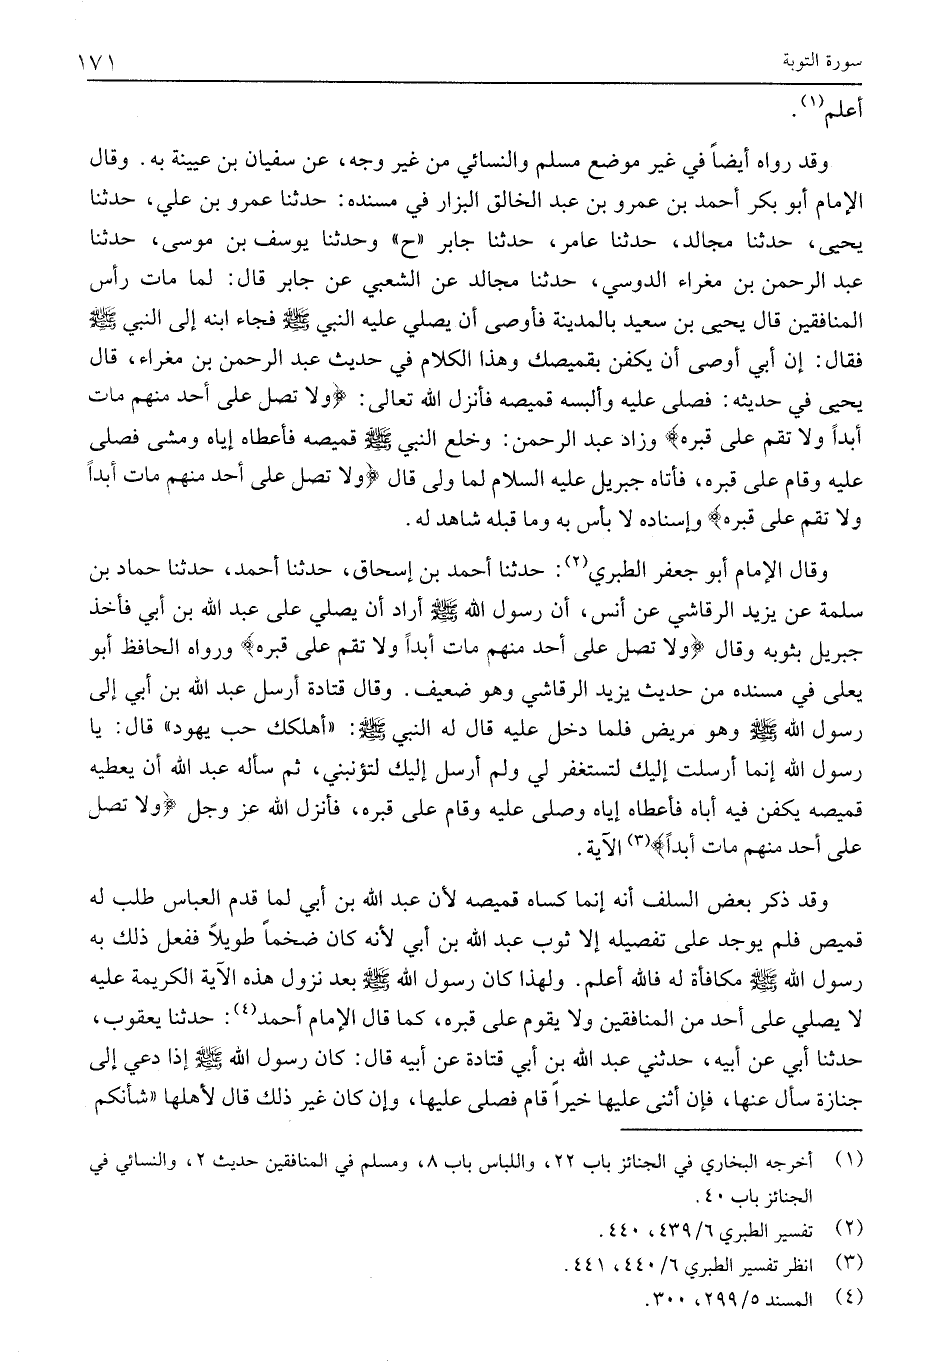 سورة التوبة ١٧١
أعلم(١).
وقد رواه أيضاً في غير موضع مسلم والنسائي من غير وجه، عن سفيان بن عيينة به. وقال
الإمام أبو بكر أحمد بن عمرو بن عبد الخالق البزار في مسنده: حدثنا عمرو بن علي، حدثنا
يحيى، حدثنا مجالد، حدثنا عامر، حدثنا جابر «ح» وحدثنا يوسف بن موسى، حدثنا
عبد الرحمن بن مغراء الدوسي، حدثنا مجالد عن الشعبي عن جابر قال: لما مات رأس
المنافقين قال يحيى بن سعيد بالمدينة فأوصى أن يصلي عليه النبي ﷺ فجاء ابنه إلى النبي ﷺ
فقال: إن أبي أوصى أن يكفن بقميصك وهذا الكلام في حديث عبد الرحمن بن مغراء، قال
يحيى في حديثه: فصلى عليه وألبسه قميصه فأنزل الله تعالى: ﴿ولا تصل على أحد منهم مات
أبداً ولا تقم على قبره﴾ وزاد عبد الرحمن: وخلع النبي ﷺ قميصه فأعطاه إياه ومشى فصلى
عليه وقام على قبره، فأتاه جبريل عليه السلام لما ولى قال ﴿ولا تصل على أحد منهم مات أبداً
ولا تقم على قبره﴾ وإسناده لا بأس به وما قبله شاهد له.
وقال الإمام أبو جعفر الطبري(٢): حدثنا أحمد بن إسحاق، حدثنا أحمد، حدثنا حماد بن
سلمة عن يزيد الرقاشي عن أنس، أن رسول الله ﷺ أراد أن يصلي على عبد الله بن أبي فأخذ
جبريل بثوبه وقال ﴿ولا تصل على أحد منهم مات أبداً ولا تقم على قبره﴾ ورواه الحافظ أبو
يعلى في مسنده من حديث يزيد الرقاشي وهو ضعيف. وقال قتادة أرسل عبد الله بن أبي إلى
رسول الله ﷺ وهو مريض فلما دخل عليه قال له النبي ﷺ: «أهلكك حب يهود» قال: يا
رسول الله إنما أرسلت إليك لتستغفر لي ولم أرسل إليك لتؤنبني، ثم سأله عبد الله أن يعطيه
قميصه يكفن فيه أباه فأعطاه إياه وصلى عليه وقام على قبره، فأنزل الله عز وجل ﴿ولا تصل
على أحد منهم مات أبداً﴾(٣) الآية.
وقد ذكر بعض السلف أنه إنما كساه قميصه لأن عبد الله بن أبي لما قدم العباس طلب له
قميص فلم يوجد على تفصيله إلا ثوب عبد الله بن أبي لأنه كان ضخماً طويلاً ففعل ذلك به
رسول الله ﷺ مكافأة له فالله أعلم. ولهذا كان رسول الله ﷺ بعد نزول هذه الآية الكريمة عليه
لا يصلي على أحد من المنافقين ولا يقوم على قبره، كما قال الإمام أحمد(٤): حدثنا يعقوب،
حدثنا أبي عن أبيه، حدثني عبد الله بن أبي قتادة عن أبيه قال: كان رسول الله ﷺ إذا دعي إلى
جنازة سأل عنها، فإن أثنى عليها خيراً قام فصلى عليها، وإن كان غير ذلك قال لأهلها «شأنكم
(١) أخرجه البخاري في الجنائز باب ٢٢، واللباس باب ٨، ومسلم في المنافقين حديث ٢، والنسائي في
الجنائز باب ٤٠.
(٢) تفسير الطبري ٤٣٩/٦، ٤٤٠.
(٣) انظر تفسير الطبري ٤٤٠/٦، ٤٤١.
(٤) المسند ٢٩٩/٥، ٣٠٠.